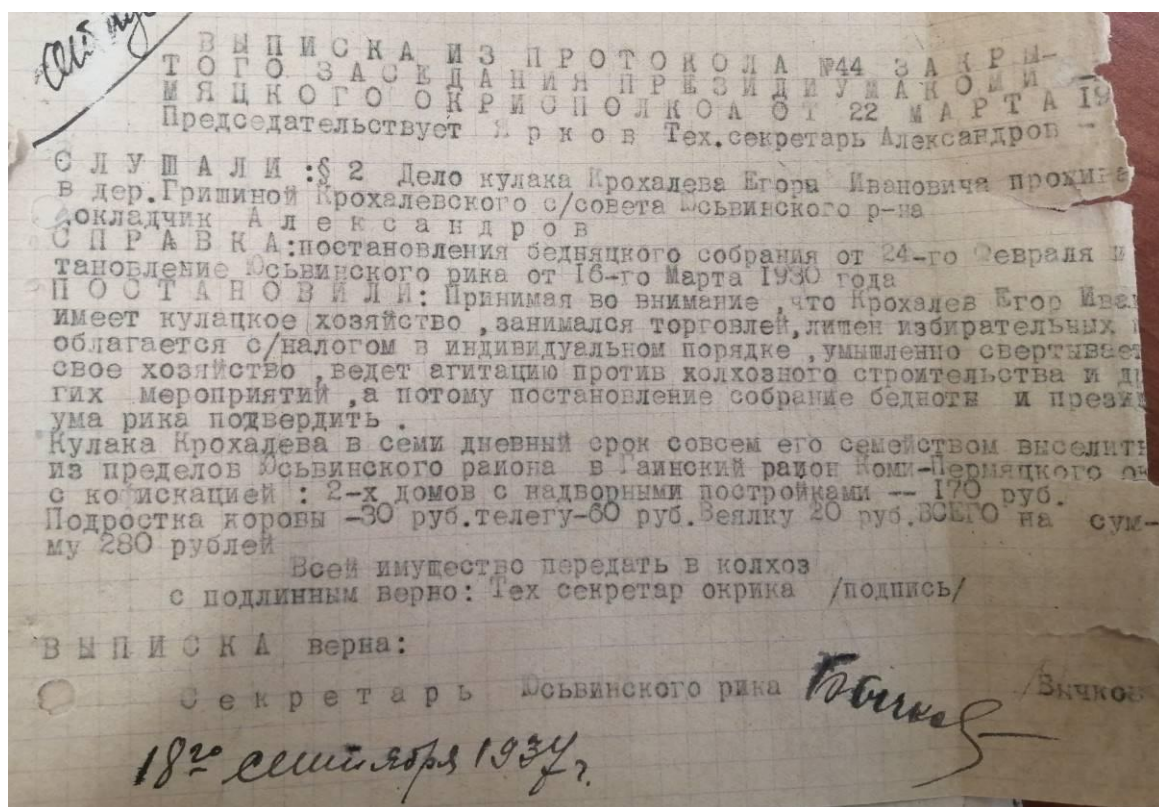 ВЫПИСКА ИЗ ПРОТОКОЛА №44 ЗАКРЫ-
ТОГО ЗАСЕДАНИЯ ПРЕЗИДИУМА КОМИ-
МЯЦКОГО ОКРИСПОЛКОА ОТ 22 МАРТА 19
Председательствует Ярков Тех.секретарь Александров
СЛУШАЛИ:§ 2 Дело кулака Крохалева Егора Ивановича прожива
в дер.Гришиной Крохалевского с/совета Юсьвинского р-на
докладчик Александров
СПРАВКА:постановления бедняцкого собрания от 24-го Февраля и
тановление Юсьвинского рика от 16-го Марта 1930 года
ПОСТАНОВИЛИ: Принимая во внимание ,что Крохалев Егор Иван
имеет кулацкое хозяйство ,занимался торговлей,лишен избирательных
облагается с/налогом в индивидуальном порядке ,умышленно свертывает
свое хозяйство ,ведет агитацию против колхозного строительства и др
гих мероприятий ,а потому постановление собрание бедноты и презид
ума рика подвердить .
Кулака Крохалева в семи дневный срок совсем его семейством выселить
из пределов Юсьвинского района в Гаинский район Коми-Пермяцкого ок
с кофискацией : 2-х домов с надворными постройками -- 170 руб.
Подростка коровы -30 руб.телегу-60 руб.Веялку 20 руб.ВСЕГО на сум-
му 280 рублей
Всей имущество передать в колхоз
с подлинным верно: Тех секретар окрика /подпись/
ВЫПИСКА верна:
Секретарь Юсьвинского рика Бычков /Бычков
18го сентября 1937г.